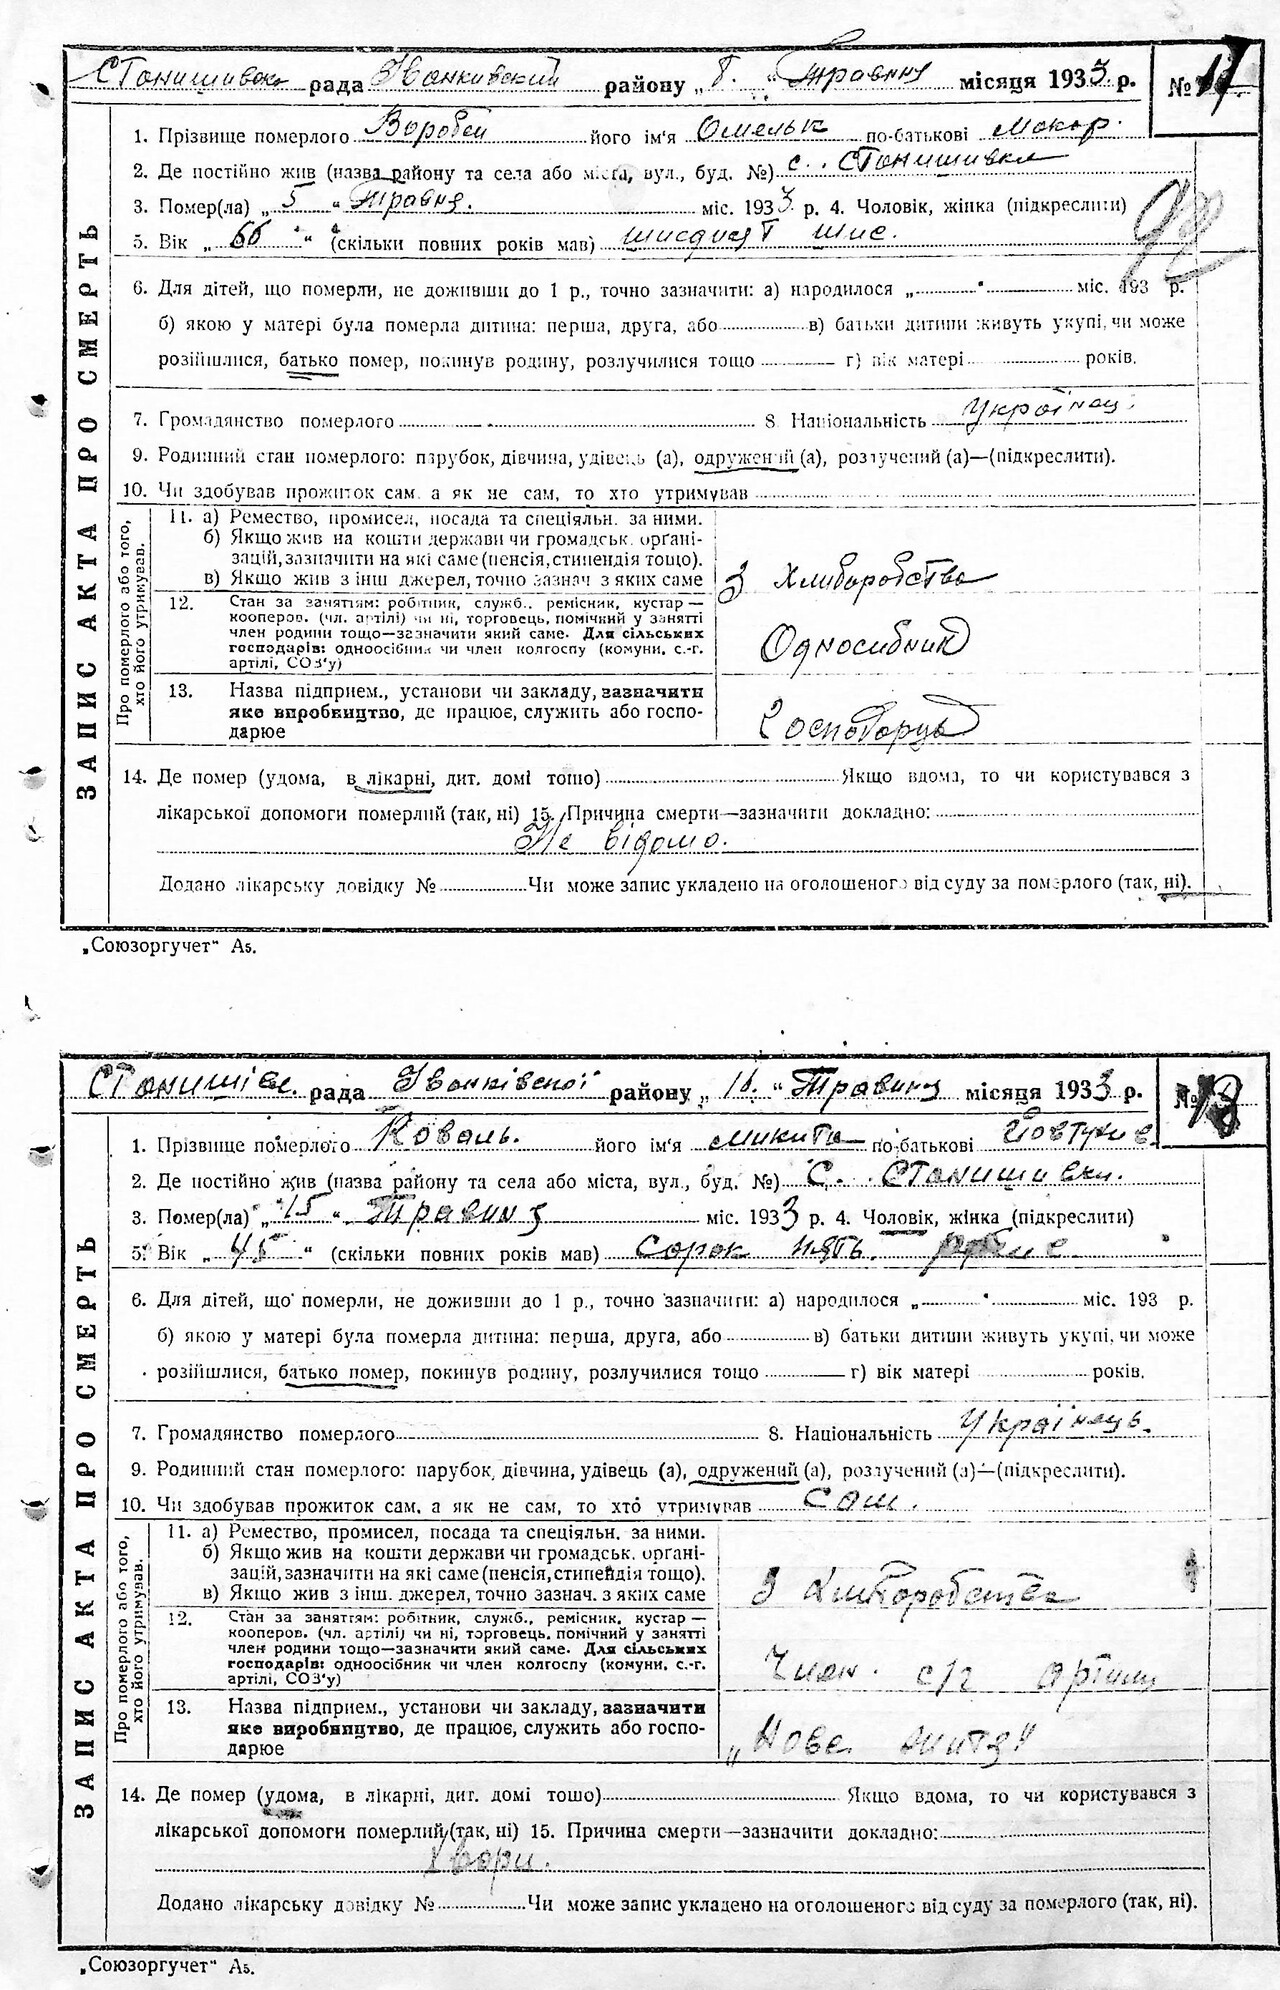 Станишивска рада Иванкивский району „ " Травня місяця 1933 р. № 17
1. Прізвище померлого Воробей його ім'я Омельк по-батькові Макар.
2. Де постійно жив (назва району та села або міста, вул., буд. №) с. Станишивка
3. Помер(ла) „ 5 " Травня. міс. 1933 р. 4. Чоловік, жінка (підкреслити)
5. Вік „ 66 " (скільки повних років мав) шисдисят шис.
6. Для дітей, що померли, не доживши до 1 р., точно зазначити: а) народилося „ " міс. 193 р.
б) якою у матері була померла дитина: перша, друга, або в) батьки дитини живуть укупі, чи може
розійшлися, батько помер, покинув родину, розлучилися тощо г) вік матері років.
7. Громадянство померлого 8. Національність Українец.
9. Родинний стан померлого: парубок, дівчина, удівець (а), одружений (а), розлучений (а)—(підкреслити).
10. Чи здобував прожиток сам, а як не сам, то хто утримував
ЗАПИС АКТА ПРО СМЕРТЬ
Про померлого або того, хто його утримував.
11. а) Ремество, промисел, посада та спеціяльн. за ними.
б) Якщо жив на кошти держави чи громадськ. органі-
зацій, зазначити на які саме (пенсія, стипендія тощо).
в) Якщо жив з інш джерел, точно зазнач з яких саме
З хлиборобства
12. Стан за заняттям: робітник, служб., ремісник, кустар—
кооперов. (чл. артілі) чи ні, торговець, помічний у занятті
член родини тощо—зазначити який саме. Для сільських
господарів: одноосібник чи член колгоспу (комуни, с.-г.
артілі, СОЗ'у)
Односибник
13. Назва підприєм., установи чи закладу, зазначити
яке виробництво, де працює, служить або госпо-
дарює
14. Де помер (удома, в лікарні, дит. домі тощо) Якщо вдома, то чи користувався з
лікарської допомоги померлий (так, ні) 15. Причина смерти—зазначити докладно:
Не відомо.
Додано лікарську довідку № Чи може запис укладено на оголошеного від суду за померлого (так, ні).
„Союзоргучет" А5.
Станишівс. рада Іванківскої району „ " Травня місяця 1933 р. № 18
1. Прізвище померлого Коваль. його ім'я Микита по-батькові
2. Де постійно жив (назва району та села або міста, вул., буд. №) С. Станишивки.
3. Помер(ла) „ 15 " Травня міс. 1933 р. 4. Чоловік, жінка (підкреслити)
5. Вік „ 45 " (скільки повних років мав) Сорок пять.
6. Для дітей, що померли, не доживши до 1 р., точно зазначити: а) народилося „ " міс. 193 р.
б) якою у матері була померла дитина: перша, друга, або в) батьки дитини живуть укупі, чи може
розійшлися, батько помер, покинув родину, розлучилися тощо г) вік матері років.
7. Громадянство померлого 8. Національність Українець.
9. Родинний стан померлого: парубок, дівчина, удівець (а), одружений (а), розлучений (а)—(підкреслити).
10. Чи здобував прожиток сам, а як не сам, то хто утримував Сам.
ЗАПИС АКТА ПРО СМЕРТЬ
Про померлого або того, хто його утримував.
11. а) Ремество, промисел, посада та спеціяльн. за ними.
б) Якщо жив на кошти держави чи громадськ. органі-
зацій, зазначити на які саме (пенсія, стипендія тощо).
в) Якщо жив з інш. джерел, точно зазнач. з яких саме
З хлиборобства
12. Стан за заняттям: робітник, служб., ремісник, кустар—
кооперов. (чл. артілі) чи ні, торговець, помічний у занятті
член родини тощо—зазначити який саме. Для сільських
господарів: одноосібник чи член колгоспу (комуни, с.-г.
артілі, СОЗ'у)
Член. с/г артили
13. Назва підприєм., установи чи закладу, зазначити
яке виробництво, де працює, служить або госпо-
дарює
„Нове життя"
14. Де помер (удома, в лікарні, дит. домі тощо) Якщо вдома, то чи користувався з
лікарської допомоги померлий (так, ні) 15. Причина смерти—зазначити докладно:
Хвори.
Додано лікарську довідку № Чи може запис укладено на оголошеного від суду за померлого (так, ні).
„Союзоргучет" А5.